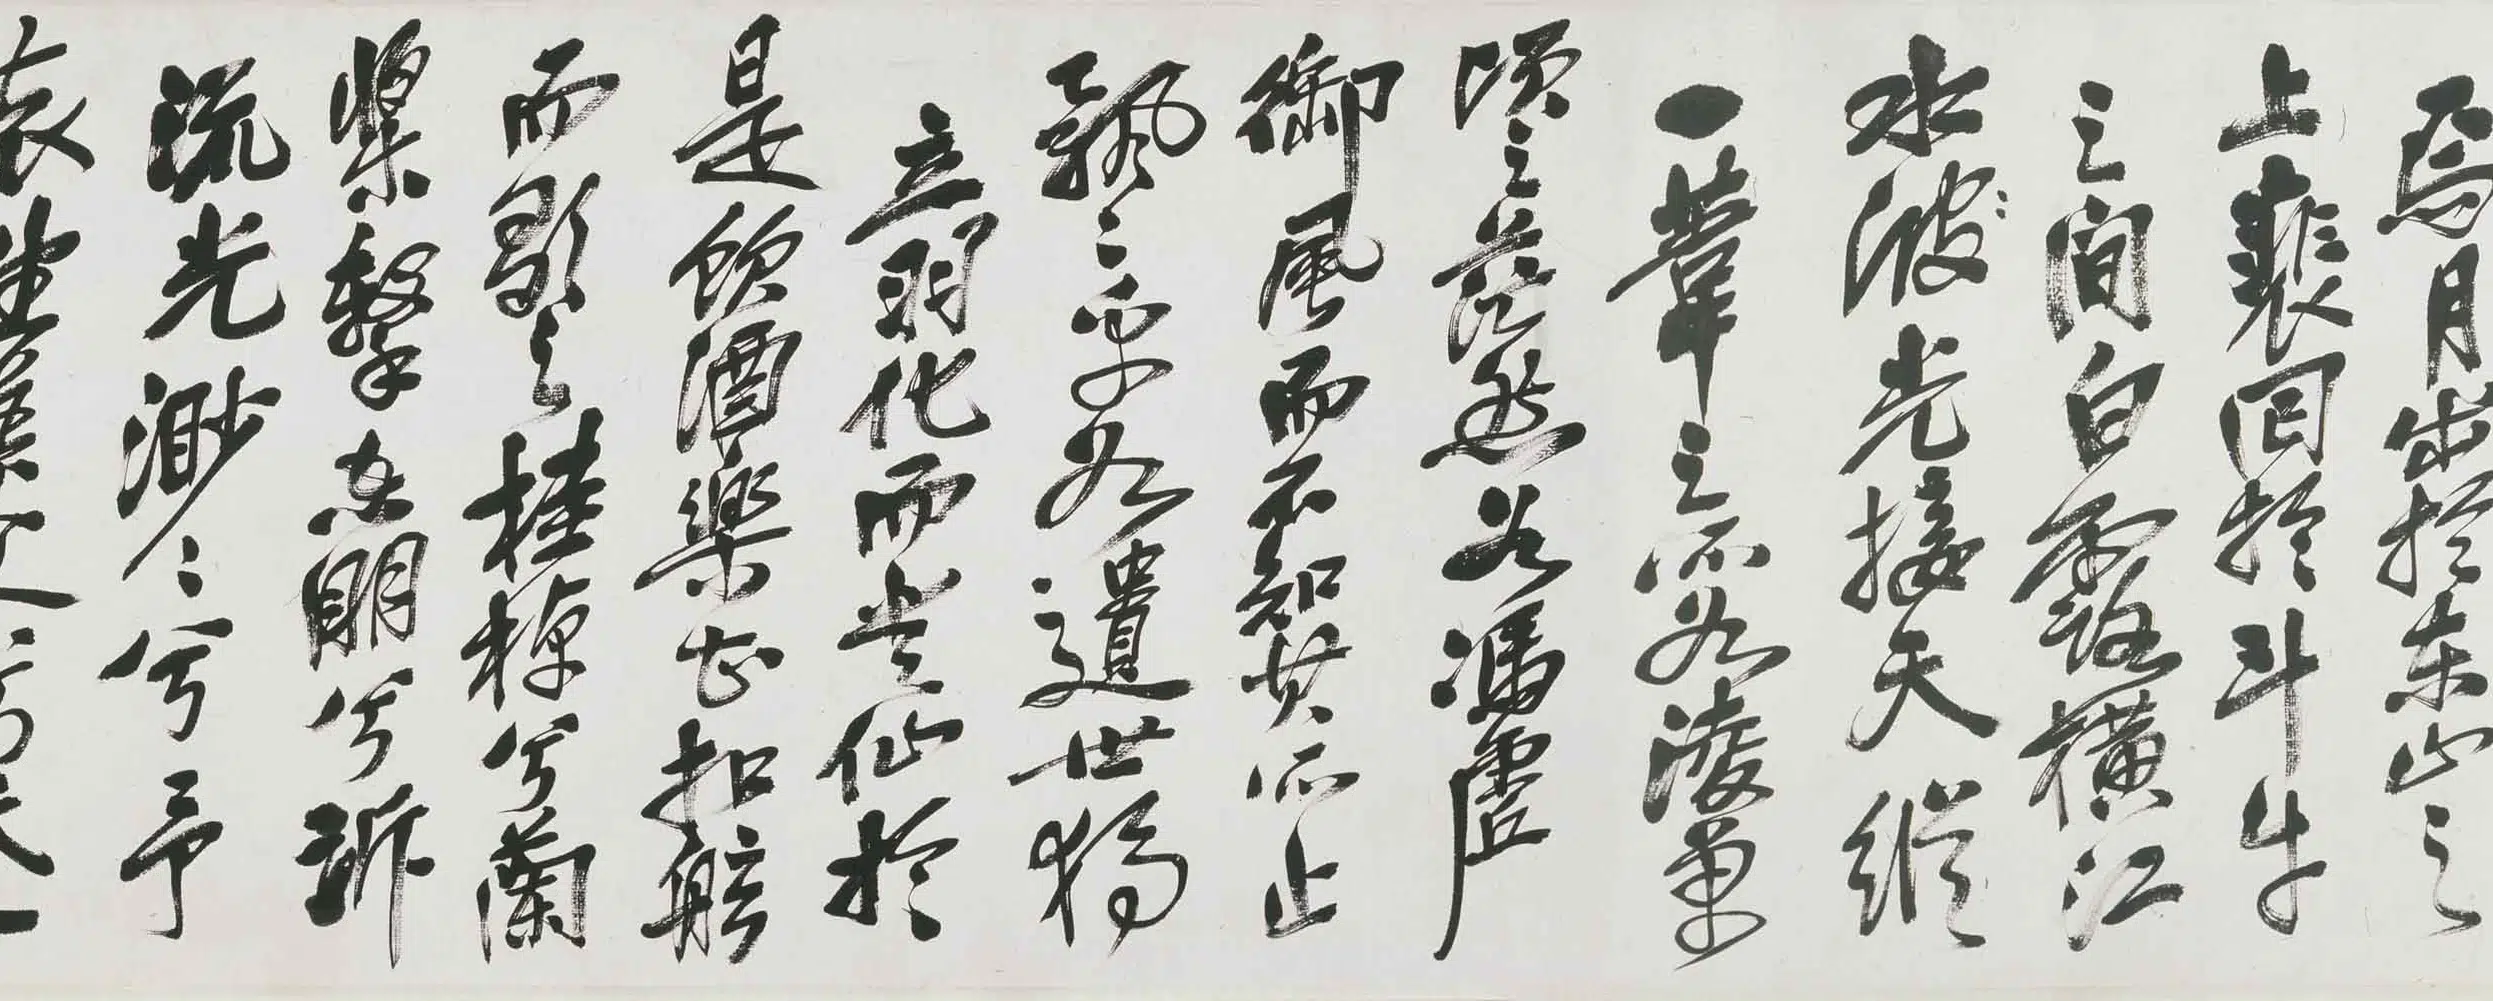 焉月出於東山之
上裴回於斗牛
之間白露橫江
水波光接天縱
一葦之所如淩萬
頃之茫然如馮虛
御風而不知其所止
飄々乎如遺世獨
立羽化而登仙於
是飲酒樂甚扣舷
而歌之桂棹兮蘭
槳擊空明兮訴
流光渺々兮予
懷望美人兮天一